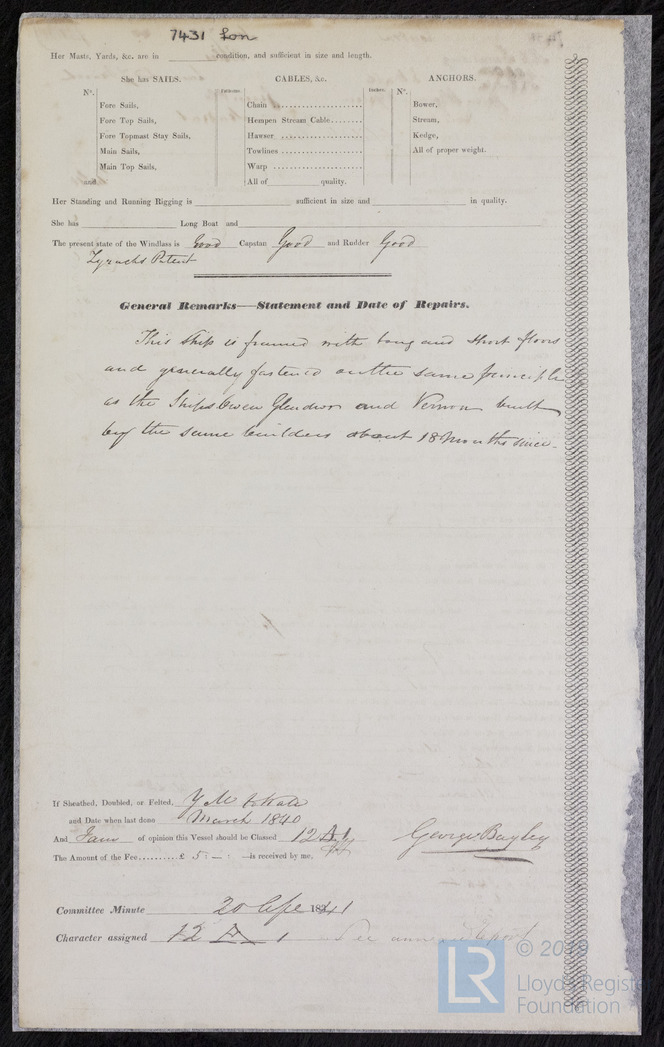 7431 Lon
Her Masts, Yards, &c. are in condition, and sufficient in size and length.
She has SAILS. CABLES, &c. ANCHORS.
N°. Fathoms. Inches. N°.
Fore Sails, Chain Bower,
Fore Top Sails, Hempen Stream Cable Stream,
Fore Topmast Stay Sails, Hawser Kedge,
Main Sails, Towlines All of proper weight.
Main Top Sails, Warp
and All of quality.
Her Standing and Running Rigging is sufficient in size and in quality.
She has Long Boat and
The present state of the Windlass is Good Capstan Good and Rudder Good
Patent
General Remarks—Statement and Date of Repairs.
This Ship is framed with long and short floors
and generally fastened on the same principle
as the Ships Owen Glendwr and Vernon built
by the same builders about 18 Months since.
If Sheathed, Doubled, or Felted, Y M
and Date when last done March 1840
And I am of opinion this Vessel should be Classed 12 A 1 George Bayley
The Amount of the Fee.......... £ 5 : — : is received by me,
Committee Minute 20 1841
Character assigned 12 A 1 Report
© 2019
LR
Lloyd's Register
Foundation